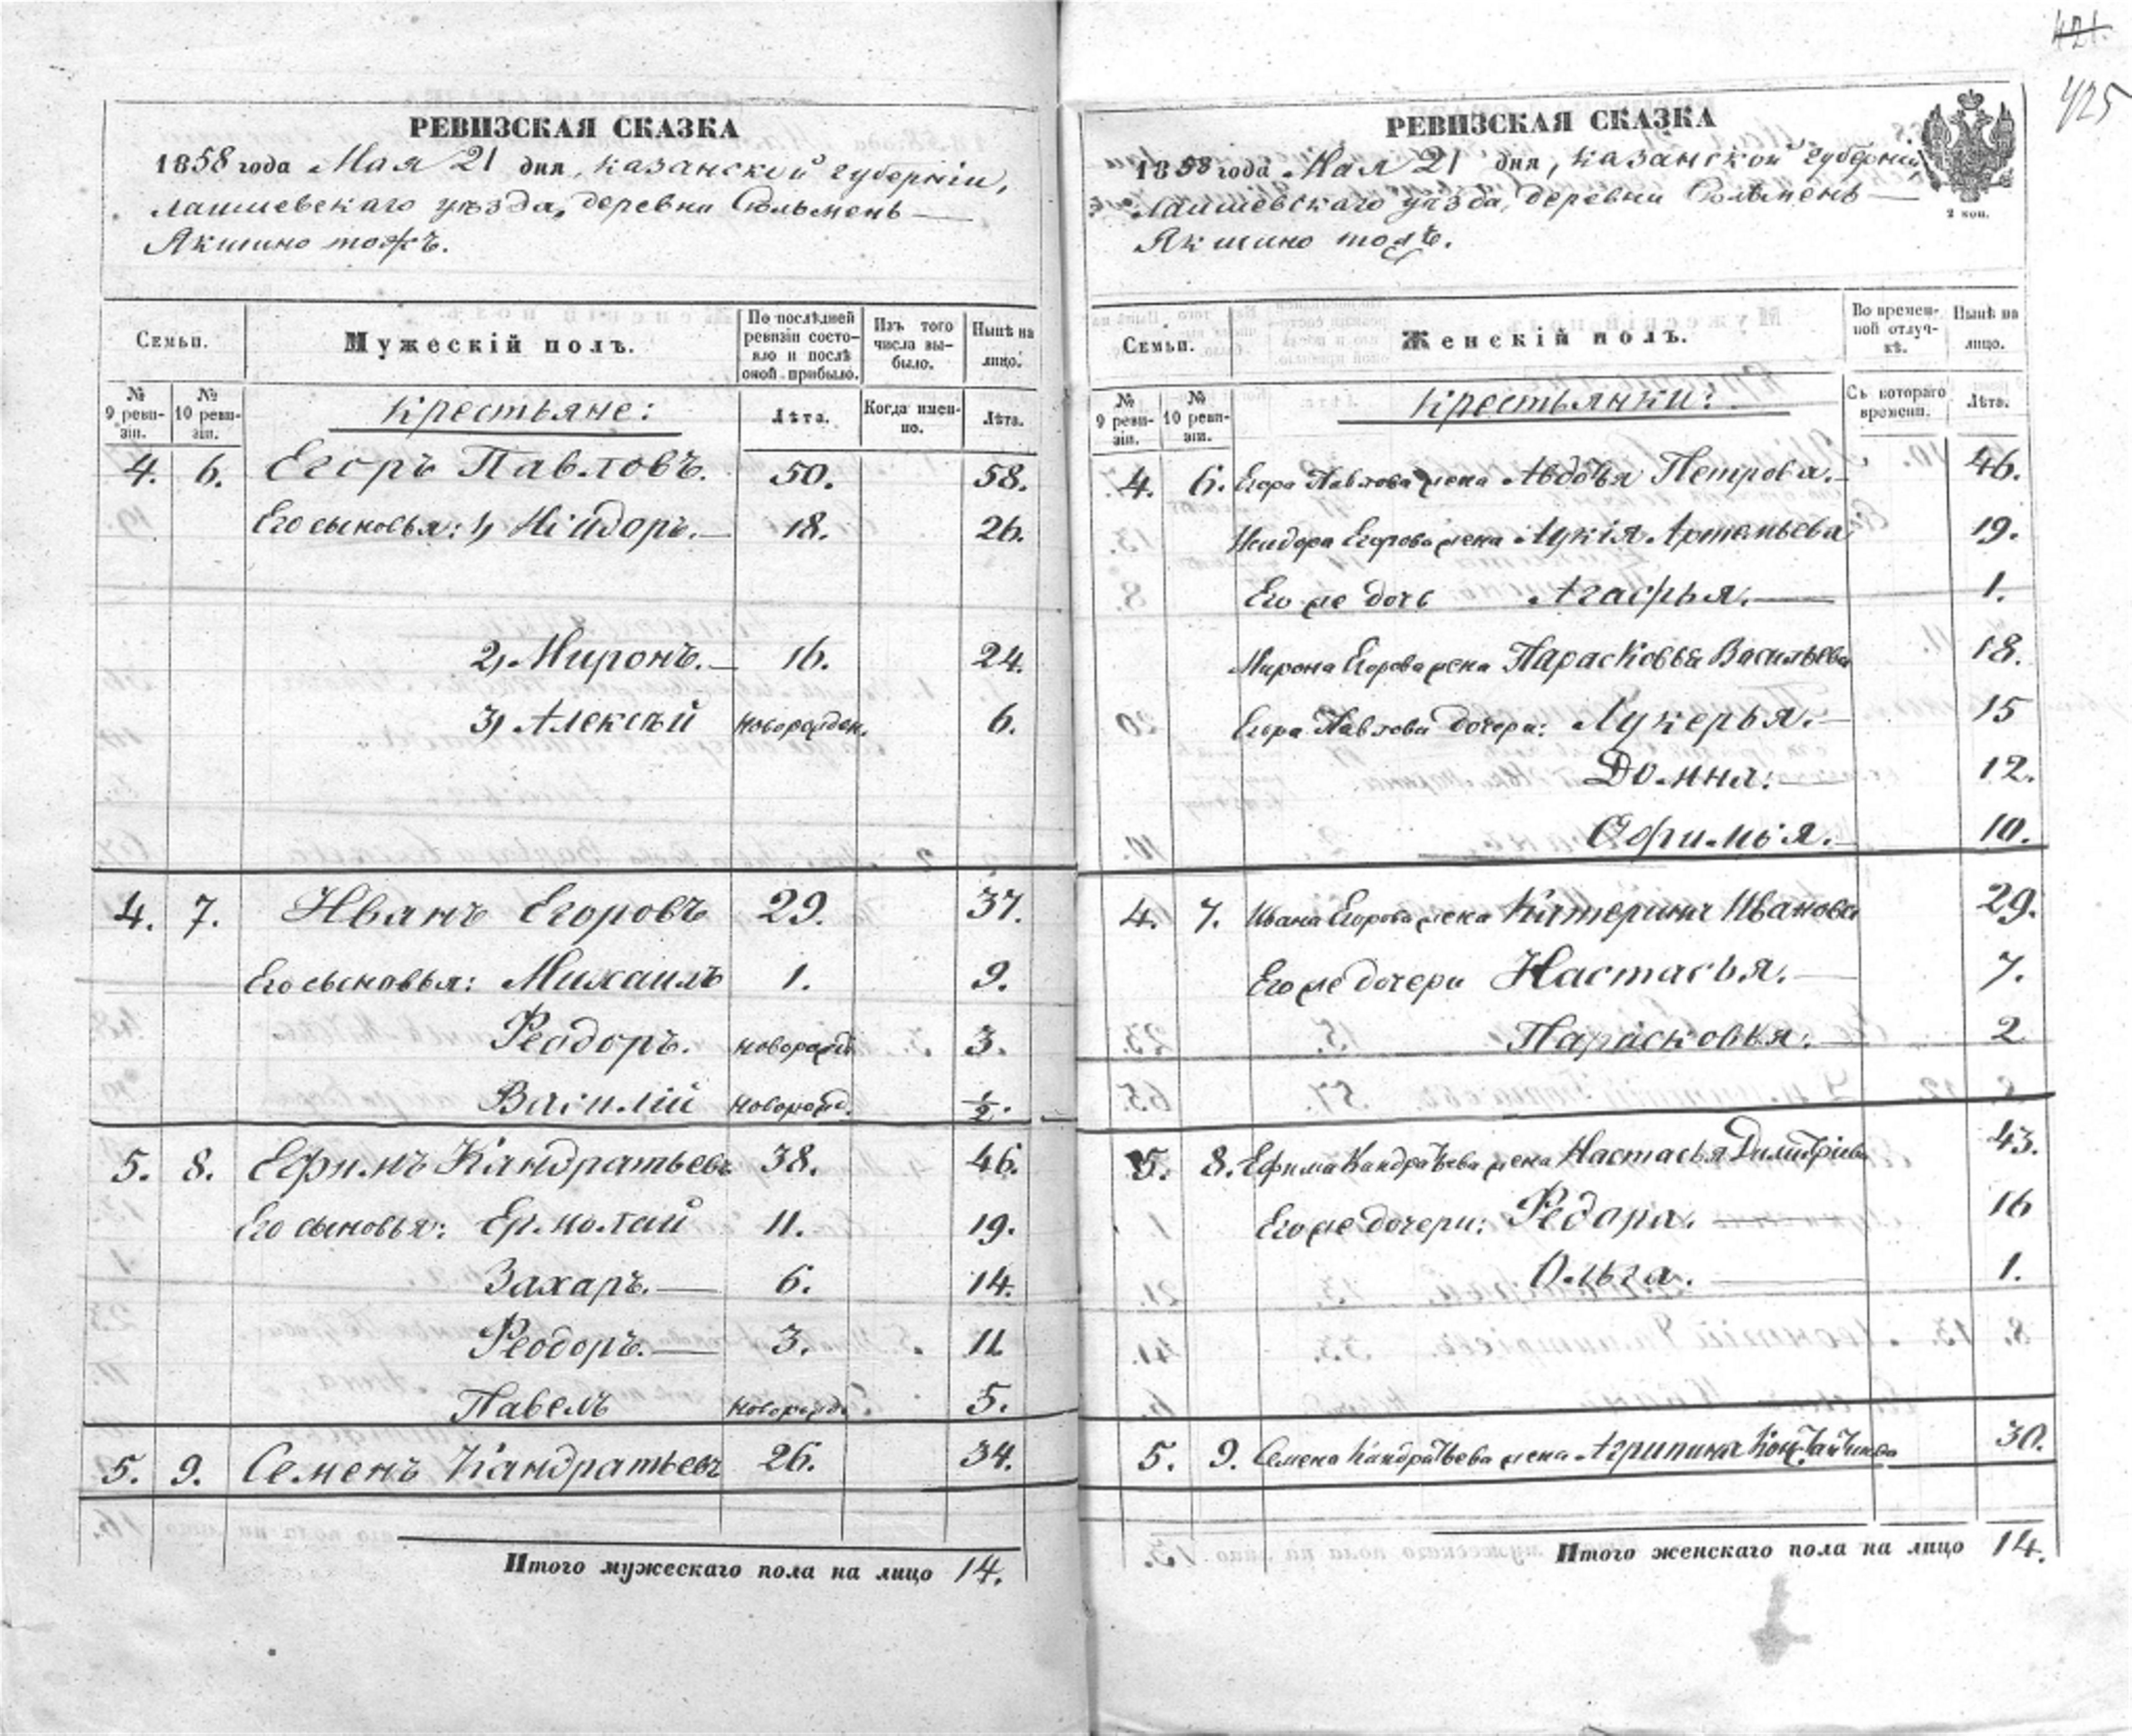 421.
425
РЕВИЗСКАЯ СКАЗКА
1858 года Мая 21 дня, Казанской губерніи,
Лаишевскаго уѣзда, деревни Сюльмень
Якшино тожъ.
Семьи.
Мужескій полъ.
По послѣдней ревизіи состояло и послѣ оной прибыло.
Изъ того числа выбыло.
Нынѣ на лицо.
№ 9 ревизіи.
№ 10 ревизіи.
Крестьяне:
Лѣта.
Когда именно.
Лѣта.
4. 6. Егоръ Павловъ. 50. 58.
Его сыновья: 1, Исидоръ. 18. 26.
2, Миронъ. 16. 24.
3, Алексѣй новорожден. 6.
4. 7. Иванъ Егоровъ 29. 37.
Его сыновья: Михаилъ 1. 9.
Ѳеодоръ. новорожд 3.
Василій новорожд. 1/2.
5. 8. Ефимъ Кандратьевъ 38. 46.
Его сыновья: Ермолай 11. 19.
Захаръ. 6. 14.
Ѳеодоръ. 3. 11
Павелъ новорожд. 5.
5. 9. Семенъ Кандратьевъ 26. 34.
Итого мужескаго пола на лицо 14.
РЕВИЗСКАЯ СКАЗКА
1858 года Мая 21 дня, Казанской губерніи,
Лаишевскаго уѣзда, деревни Сюльмень
Якшино тожъ.
2 коп.
Семьи.
Женскій полъ.
Во временной отлучкѣ.
Нынѣ на лицо.
№ 9 ревизіи.
№ 10 ревизіи.
Крестьянки:
Съ котораго времени.
Лѣта.
4. 6. Егора Павлова жена Авдотья Петрова. 46.
Исидора Егорова жена Лукія Артемьева 19.
Его же дочь Агафья. 1.
Мирона Егорова жена Парасковья Васильева 18.
Егора Павлова дочери: Лукерья. 15
Домна: 12.
Офимья. 10.
4. 7. Ивана Егорова жена Катерина Иванова 29.
Его же дочери Настасья. 7.
Парасковья. 2
5. 8. Ефима Кандратьева жена Настасья Димитріева 43.
Его же дочери: Ѳедора. 16
Ольга. 1.
5. 9. Семена Кандратьева жена Агрипина 30.
Итого женскаго пола на лицо 14.